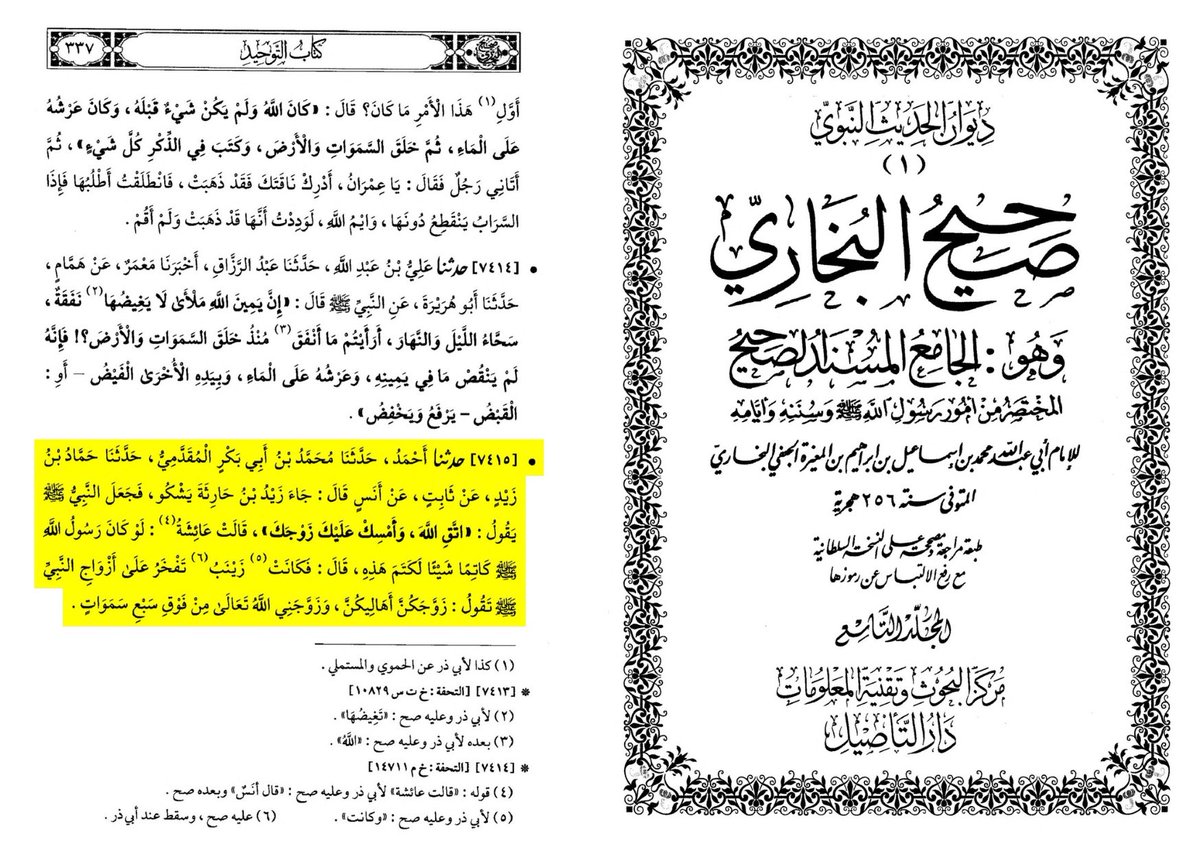 ديوان الحديث النبوي
(١)
صحيح البخاري
وهو: الجامع المسند الصحيح
المختصر من أمور رسول الله ﷺ وسننه وأيامه
للإمام أبي عبد الله محمد بن إسماعيل بن إبراهيم بن المغيرة الجعفي البخاري
المتوفى سنة ٢٥٦ هجرية
طبعة مراجعة ومصححة على النسخة السلطانية
مع رفع الالتباس عن رموزها
المجلد التاسع
مركز البحوث وتقنية المعلومات
دار التأصيل
كتاب التوحيد
٣٣٧
أَوَّلِ (١) هَذَا الْأَمْرِ مَا كَانَ؟ قَالَ: «كَانَ اللَّهُ وَلَمْ يَكُنْ شَيْءٌ قَبْلَهُ، وَكَانَ عَرْشُهُ
عَلَى الْمَاءِ، ثُمَّ خَلَقَ السَّمَوَاتِ وَالْأَرْضَ، وَكَتَبَ فِي الذِّكْرِ كُلَّ شَيْءٍ»، ثُمَّ
أَتَانِي رَجُلٌ فَقَالَ: يَا عِمْرَانُ، أَدْرِكْ نَاقَتَكَ فَقَدْ ذَهَبَتْ، فَانْطَلَقْتُ أَطْلُبُهَا فَإِذَا
السَّرَابُ يَنْقَطِعُ دُونَهَا، وَايْمُ اللَّهِ، لَوَدِدْتُ أَنَّهَا قَدْ ذَهَبَتْ وَلَمْ أَقُمْ.
• [٧٤١٤] حدثنا عَلِيُّ بْنُ عَبْدِ اللَّهِ، حَدَّثَنَا عَبْدُ الرَّزَّاقِ، أَخْبَرَنَا مَعْمَرٌ، عَنْ هَمَّامٍ،
حَدَّثَنَا أَبُو هُرَيْرَةَ، عَنِ النَّبِيِّ ﷺ قَالَ: «إِنَّ يَمِينَ اللَّهِ مَلْأَى لَا يَغِيضُهَا (٢) نَفَقَةٌ،
سَحَّاءُ اللَّيْلَ وَالنَّهَارَ، أَرَأَيْتُمْ مَا أَنْفَقَ (٣) مُنْذُ خَلَقَ السَّمَوَاتِ وَالْأَرْضَ؟! فَإِنَّهُ
لَمْ يَنْقُصْ مَا فِي يَمِينِهِ، وَعَرْشُهُ عَلَى الْمَاءِ، وَبِيَدِهِ الْأُخْرَى الْفَيْضُ – أَوِ:
الْقَبْضُ – يَرْفَعُ وَيَخْفِضُ».
• [٧٤١٥] حدثنا أَحْمَدُ، حَدَّثَنَا مُحَمَّدُ بْنُ أَبِي بَكْرٍ الْمُقَدَّمِيُّ، حَدَّثَنَا حَمَّادُ بْنُ
زَيْدٍ، عَنْ ثَابِتٍ، عَنْ أَنَسٍ قَالَ: جَاءَ زَيْدُ بْنُ حَارِثَةَ يَشْكُو، فَجَعَلَ النَّبِيُّ ﷺ
يَقُولُ: «اتَّقِ اللَّهَ، وَأَمْسِكْ عَلَيْكَ زَوْجَكَ»، قَالَتْ عَائِشَةُ (٤): لَوْ كَانَ رَسُولُ اللَّهِ
ﷺ كَاتِمًا شَيْئًا لَكَتَمَ هَذِهِ، قَالَ: فَكَانَتْ (٥) زَيْنَبُ (٦) تَفْخَرُ عَلَى أَزْوَاجِ النَّبِيِّ
ﷺ تَقُولُ: زَوَّجَكُنَّ أَهَالِيكُنَّ، وَزَوَّجَنِي اللَّهُ تَعَالَى مِنْ فَوْقِ سَبْعِ سَمَوَاتٍ.
(١) كذا لأبي ذر عن الحموي والمستملي.
* [٧٤١٣] [التحفة: خ ت س ١٠٨٢٩]
(٢) لأبي ذر وعليه صح: «تَغِيضُهَا».
(٣) بعده لأبي ذر وعليه صح: «اللَّهُ».
* [٧٤١٤] [التحفة: خ م ١٤٧١١]
(٤) قوله: «قالت عائشة» لأبي ذر وعليه صح: «قال أنَسٌ» وبعده صح.
(٥) لأبي ذر وعليه صح: «وكانت». (٦) عليه صح، وسقط عند أبي ذر.